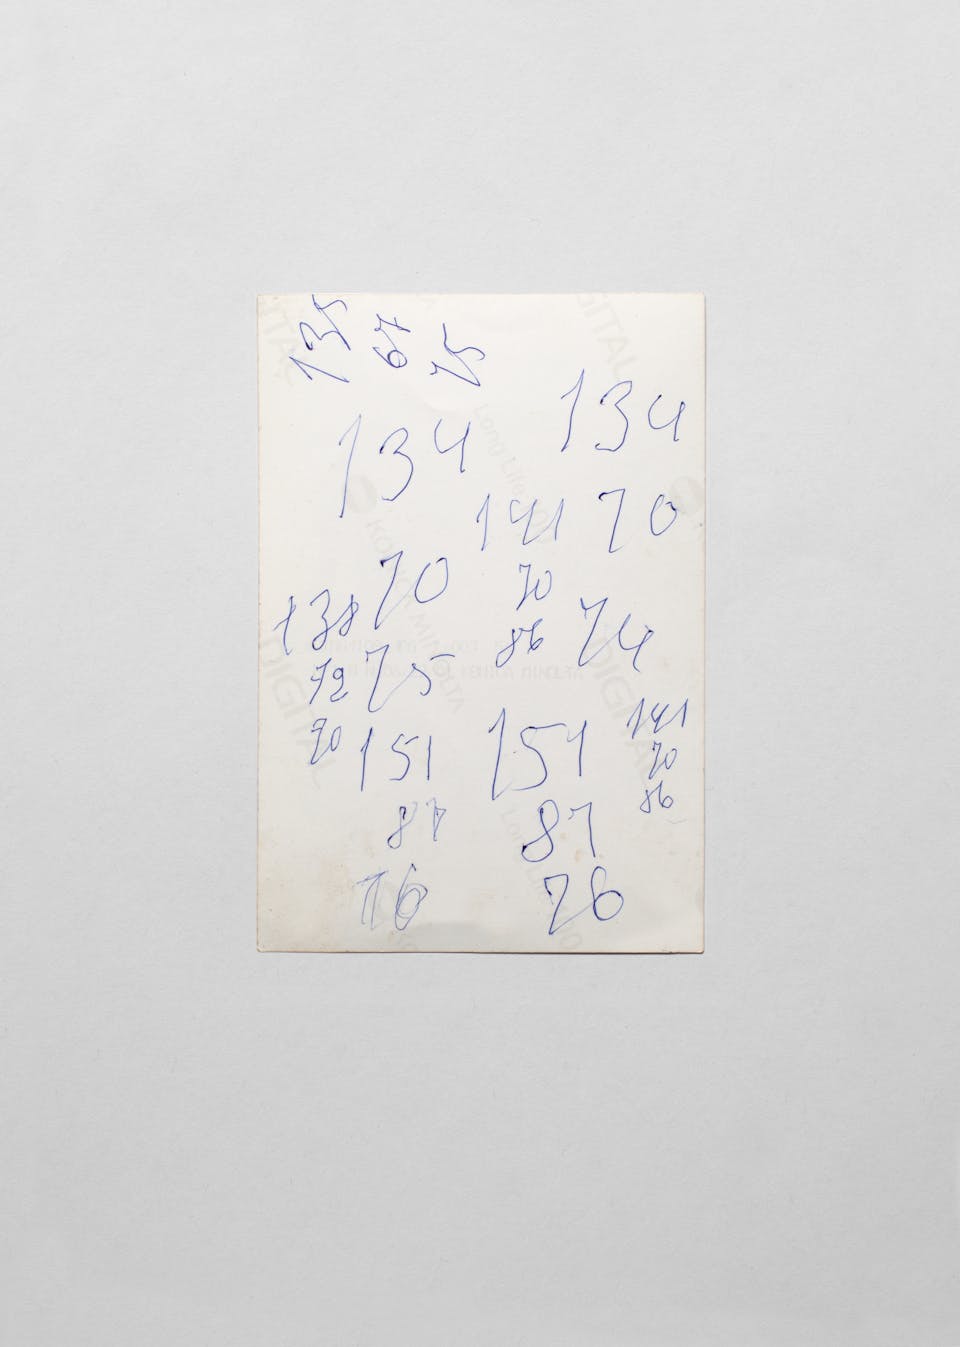 135 67 75
134
134
141 70
70
70
138
86 74
72 75
141
70 151 151
70
86
87 87
76 76
DIGITAL
DIGITAL
DIGITAL
KONICA MINOLTA
Long Life 100